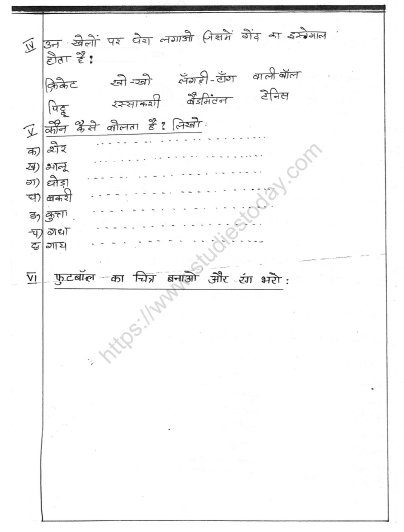 IV उन खेलों पर घेरा लगाओ जिसमें गेंद का इस्तेमाल
होता है!
क्रिकेट खो-खो लँगड़ी-टाँग वालीबॉल
पिट्ठू रस्साकशी बैडमिंटन टेनिस
V कौन कैसे बोलता है? लिखो:
क) शेर
ख) भालू
ग) घोड़ा
घ) बकरी
ङ) कुत्ता
च) गधा
छ) गाय
VI फुटबॉल का चित्र बनाओ और रंग भरो:
https://www.studiestoday.com